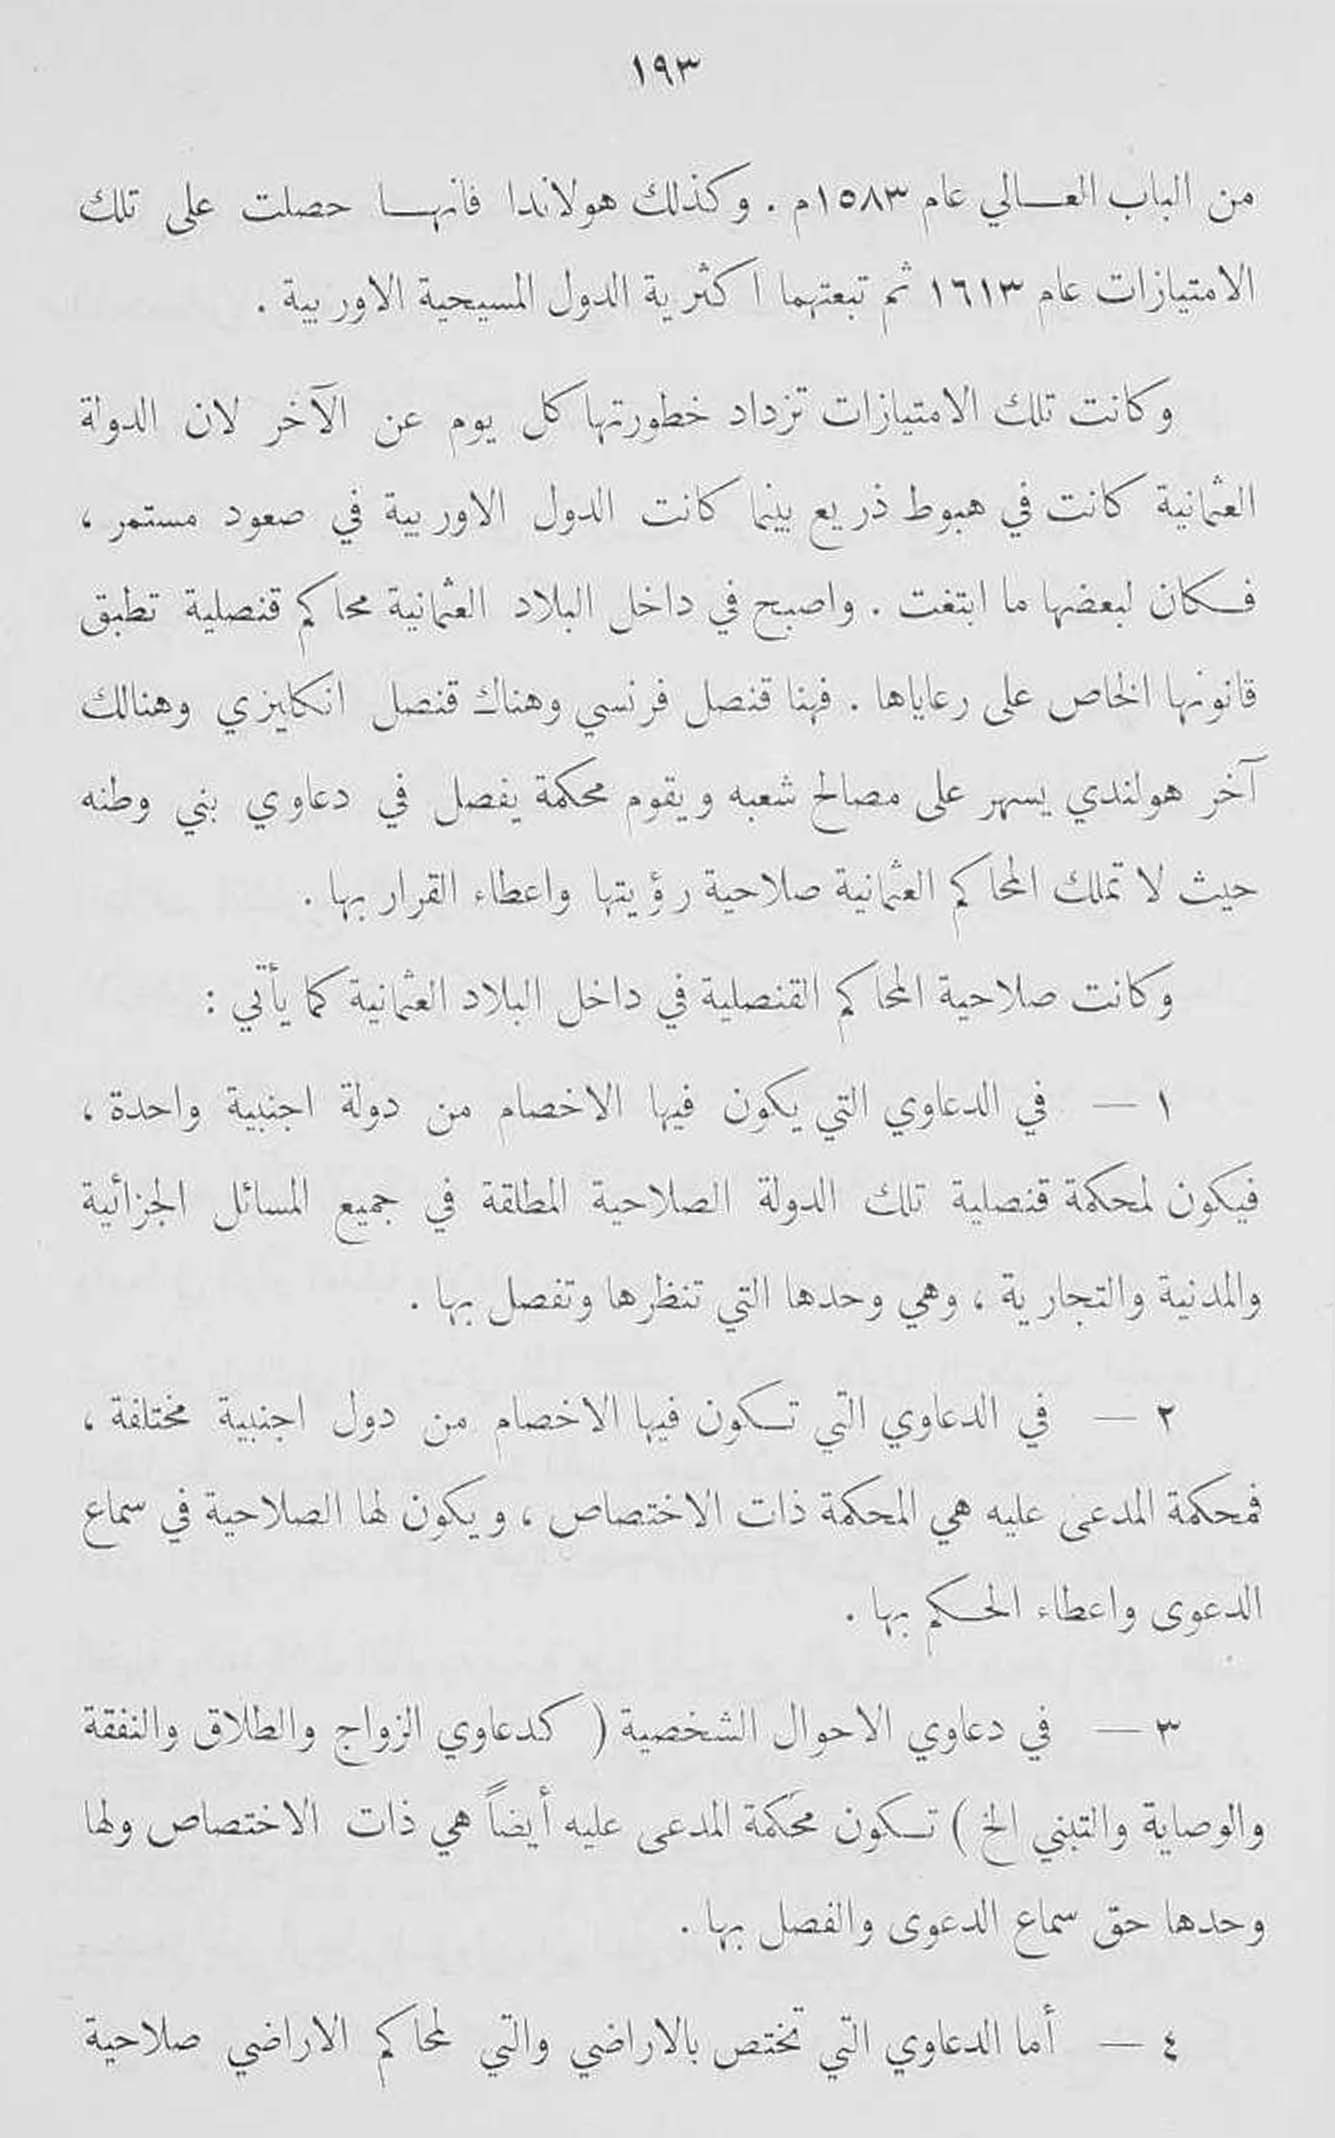 ١٩٣
من الباب العالي عام ١٥٨٣م . وكذلك هولاندا فانها حصلت على تلك
الامتيازات عام ١٦١٣ ثم تبعتهما اكثرية الدول المسيحية الاوربية .
وكانت تلك الامتيازات تزداد خطورتها كل يوم عن الآخر لان الدولة
العثمانية كانت في هبوط ذريع بينما كانت الدول الاوربية في صعود مستمر ،
فكان لبعضها ما ابتغت . واصبح في داخل البلاد العثمانية محاكم قنصلية تطبق
قانونها الخاص على رعاياها . فهنا قنصل فرنسي وهناك قنصل انكليزي وهنالك
آخر هولندي يسهر على مصالح شعبه ويقوم محكمة يفصل في دعاوي بني وطنه
حيث لا تملك المحاكم العثمانية صلاحية رؤيتها واعطاء القرار بها .
وكانت صلاحية المحاكم القنصلية في داخل البلاد العثمانية كما يأتي :
١ — في الدعاوي التي يكون فيها الاخصام من دولة اجنبية واحدة ،
فيكون لمحكمة قنصلية تلك الدولة الصلاحية المطلقة في جميع المسائل الجزائية
والمدنية والتجارية ، وهي وحدها التي تنظرها وتفصل بها .
٢ — في الدعاوي التي تكون فيها الاخصام من دول اجنبية مختلفة ،
فمحكمة المدعى عليه هي المحكمة ذات الاختصاص ، ويكون لها الصلاحية في سماع
الدعوى واعطاء الحكم بها .
٣ — في دعاوي الاحوال الشخصية ( كدعاوي الزواج والطلاق والنفقة
والوصاية والتبني الخ ) تكون محكمة المدعى عليه أيضاً هي ذات الاختصاص ولها
وحدها حق سماع الدعوى والفصل بها .
٤ — أما الدعاوي التي تختص بالاراضي والتي لمحاكم الاراضي صلاحية